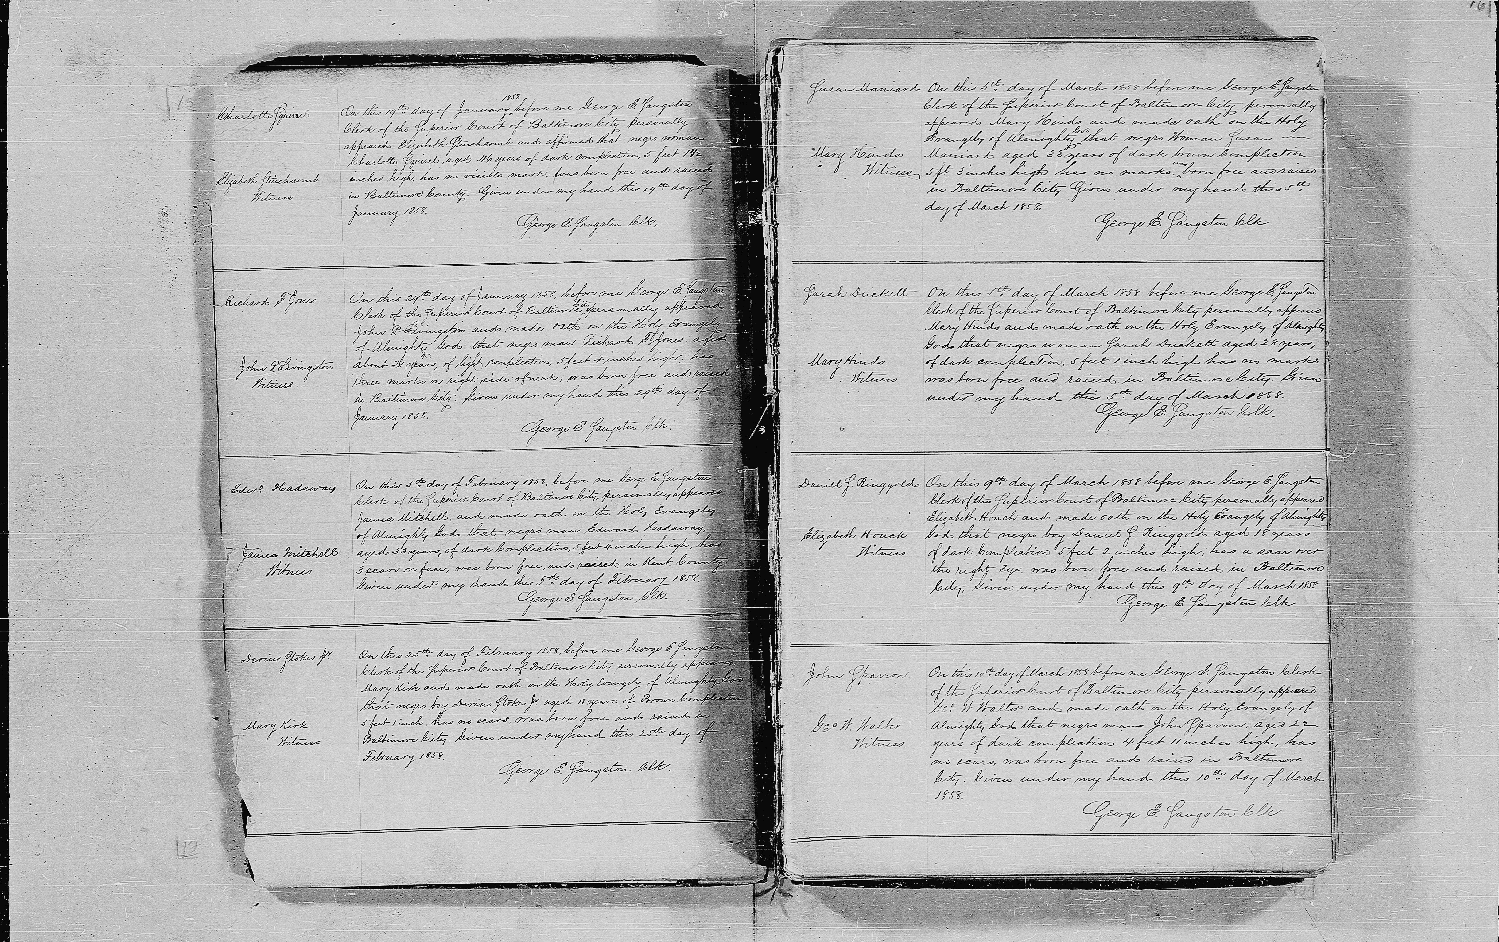 Charlotte
On this 19th day of January 1858 before me George E. Sangston
Clerk of the Superior Court of Baltimore City personally
appeared Elizabeth and affirmed that negro woman
Charlotte aged years of dark complection, 5 feet
inches high, has no visible mark, was born free and raised
in Baltimore County. Given under my hand this 19th day of
January 1858.
George E. Sangston Clk.
Elizabeth
Witness
Richard Jones
On this 29th day of January 1858, before me George E. Sangston
Clerk of the Superior Court of Baltimore City personally appeared
John Livingston and made oath on the Holy Evangely
of Almighty God that negro man Richard Jones aged
about years, of light complection, 5 feet inches high, has
marks on right side of neck, was born free and raised
in Baltimore City. Given under my hand this 29th day of
January 1858.
George E. Sangston Clk.
John Livingston
Witness
Edwd. Headaway
On this 5th day of February 1858, before me George E. Sangston
Clerk of the Superior Court of Baltimore City, personally appeared
James Mitchell, and made oath on the Holy Evangely
of Almighty God, that negro man Edward Headaway,
aged years, of dark Complection, 5 feet inches high, has
scars on face, was born free, and raised in Kent County
Given under my hand this 5th day of February 1858.
George E. Sangston Clk.
James Mitchell
Witness
Stokes Jr.
On this 25th day of February 1858, before me George E. Sangston
Clerk of the Superior Court of Baltimore City personally appeared
Mary Kirk and made oath on the Holy Evangely of Almighty God
that negro boy Stokes Jr. aged 18 years of Brown Complection
5 feet 1 inch, has no scars was born free and raised in
Baltimore City Given under my hand this 25th day of
February 1858.
George E. Sangston Clk.
Mary Kirk
Witness
Susan Maniard
On this 5th day of March 1858 before me George E. Sangston
Clerk of the Superior Court of Baltimore City personally
appeared Mary Hinds and made oath on the Holy
Evangely of Almighty God that negro Woman Susan
Maniard aged 33 years of dark brown Complection
5 ft 3 inches high has no marks, born free and raised
in Baltimore City Given under my hand this 5th
day of March 1858.
George E. Sangston Clk
Mary Hinds
Witness
Sarah Duckett
On this 5th day of March 1858 before me George E. Sangston
Clerk of the Superior Court of Baltimore City personally appeared
Mary Hinds and made oath on the Holy Evangely of Almighty
God that negro woman Sarah Duckett aged 28 years,
of dark complection, 5 feet 1 inch high has no marks
was born free and raised in Baltimore City Given
under my hand this 5th day of March 1858.
George E. Sangston Clk.
Mary Hinds
Witness
Daniel J. Ringgold
On this 9th day of March 1858 before me George E. Sangston
Clerk of the Superior Court of Baltimore City personally appeared
Elizabeth Houck and made oath on the Holy Evangely of Almighty
God, that negro boy Daniel J. Ringgold aged 18 years
of dark Complection 5 feet 2 inches high, has a scar over
the right Eye was born free and raised in Baltimore
City, Given under my hand this 9th day of March 1858
George E. Sangston Clk
Elizabeth Houck
Witness
John Sparrow
On this 10th day of March 1858 before me George E. Sangston Clerk
of the Superior Court of Baltimore City personally appeared
Geo. W. Walter and made oath on the Holy Evangely of
Almighty God that negro man John Sparrow, aged 22
years of dark complection 4 feet 11 inches high, has
no scars, was born free and raised in Baltimore
City. Given under my hand this 10th day of March
1858.
George E. Sangston Clk
Geo W. Walter
Witness